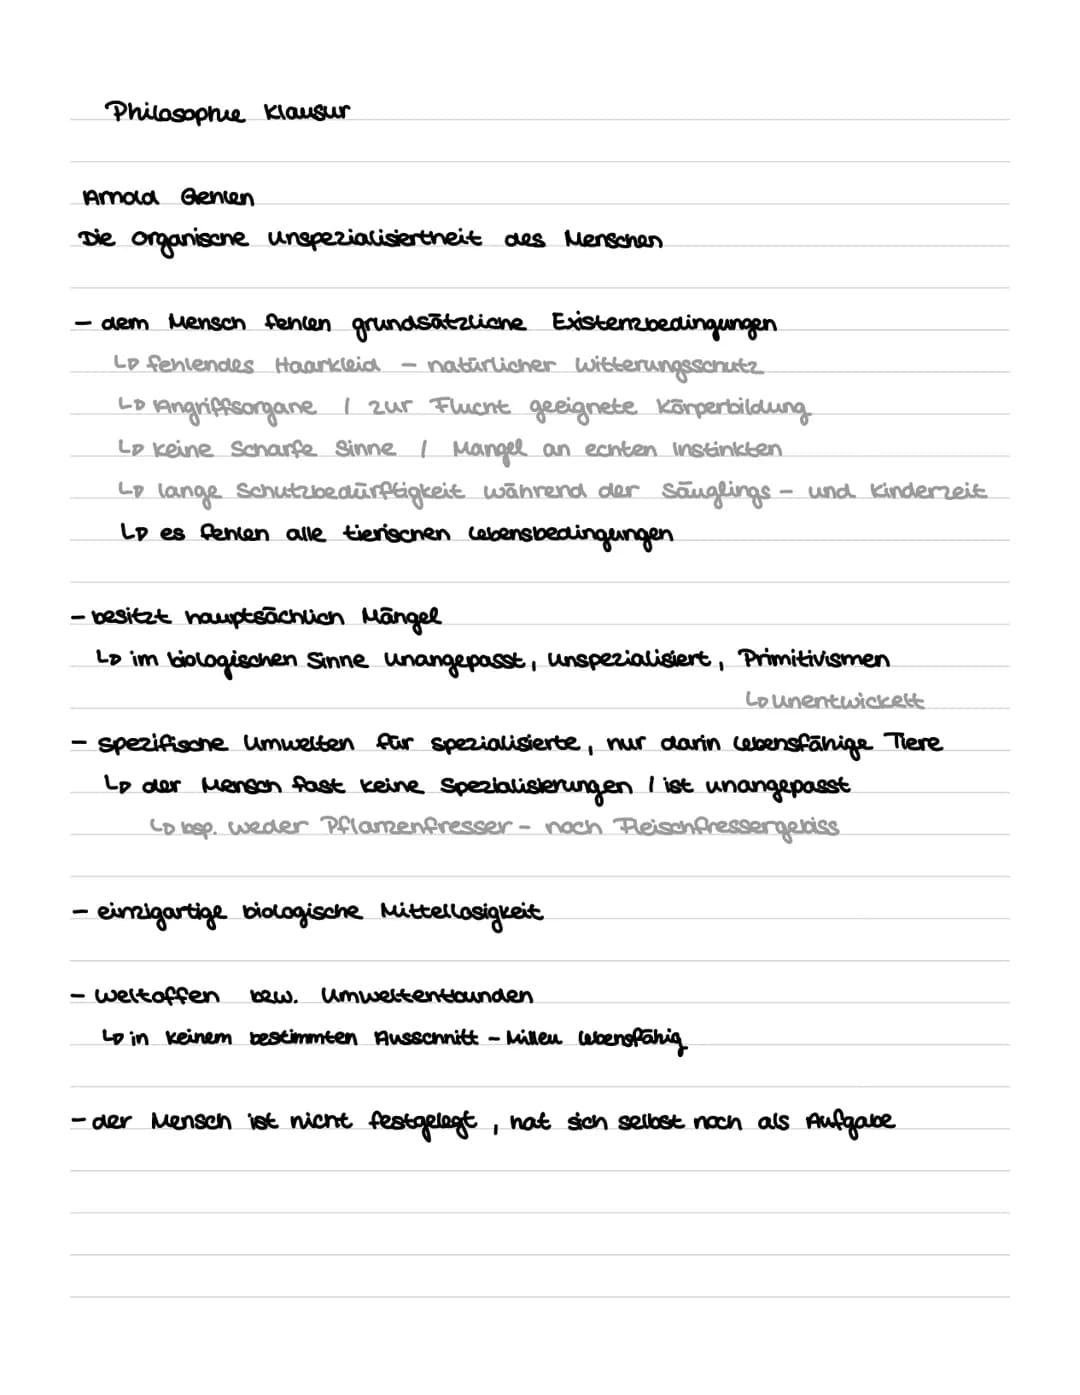 Philosophie Klausur
Arnold Gehlen
Die organische Unspezialisiertheit des Menschen
- dem Mensch fehlen grundsätzliche Existenzbedingungen
↳ fehlendes Haarkleid - natürlicher Witterungsschutz
↳ Angriffsorgane / zur Flucht geeignete Körperbildung
↳ keine Scharfe Sinne / Mangel an echten Instinkten
↳ lange Schutzbedürftigkeit während der Säuglings - und Kinderzeit
↳ es fehlen alle tierischen Lebensbedingungen
- besitzt hauptsächlich Mängel
↳ im biologischen Sinne unangepasst, unspezialisiert, Primitivismen
↳ unentwickelt
- spezifische Umwelten für spezialisierte, nur darin lebensfähige Tiere
↳ der Mensch fast keine Spezialisierungen / ist unangepasst
↳ bsp. weder Pflanzenfresser - noch Fleischfressergebiss
- einzigartige biologische Mittellosigkeit
- weltoffen bzw. Umweltentbunden
↳ in keinem bestimmten Ausschnitt - Milleu lebensfähig
- der Mensch ist nicht festgelegt, hat sich selbst noch als Aufgabe